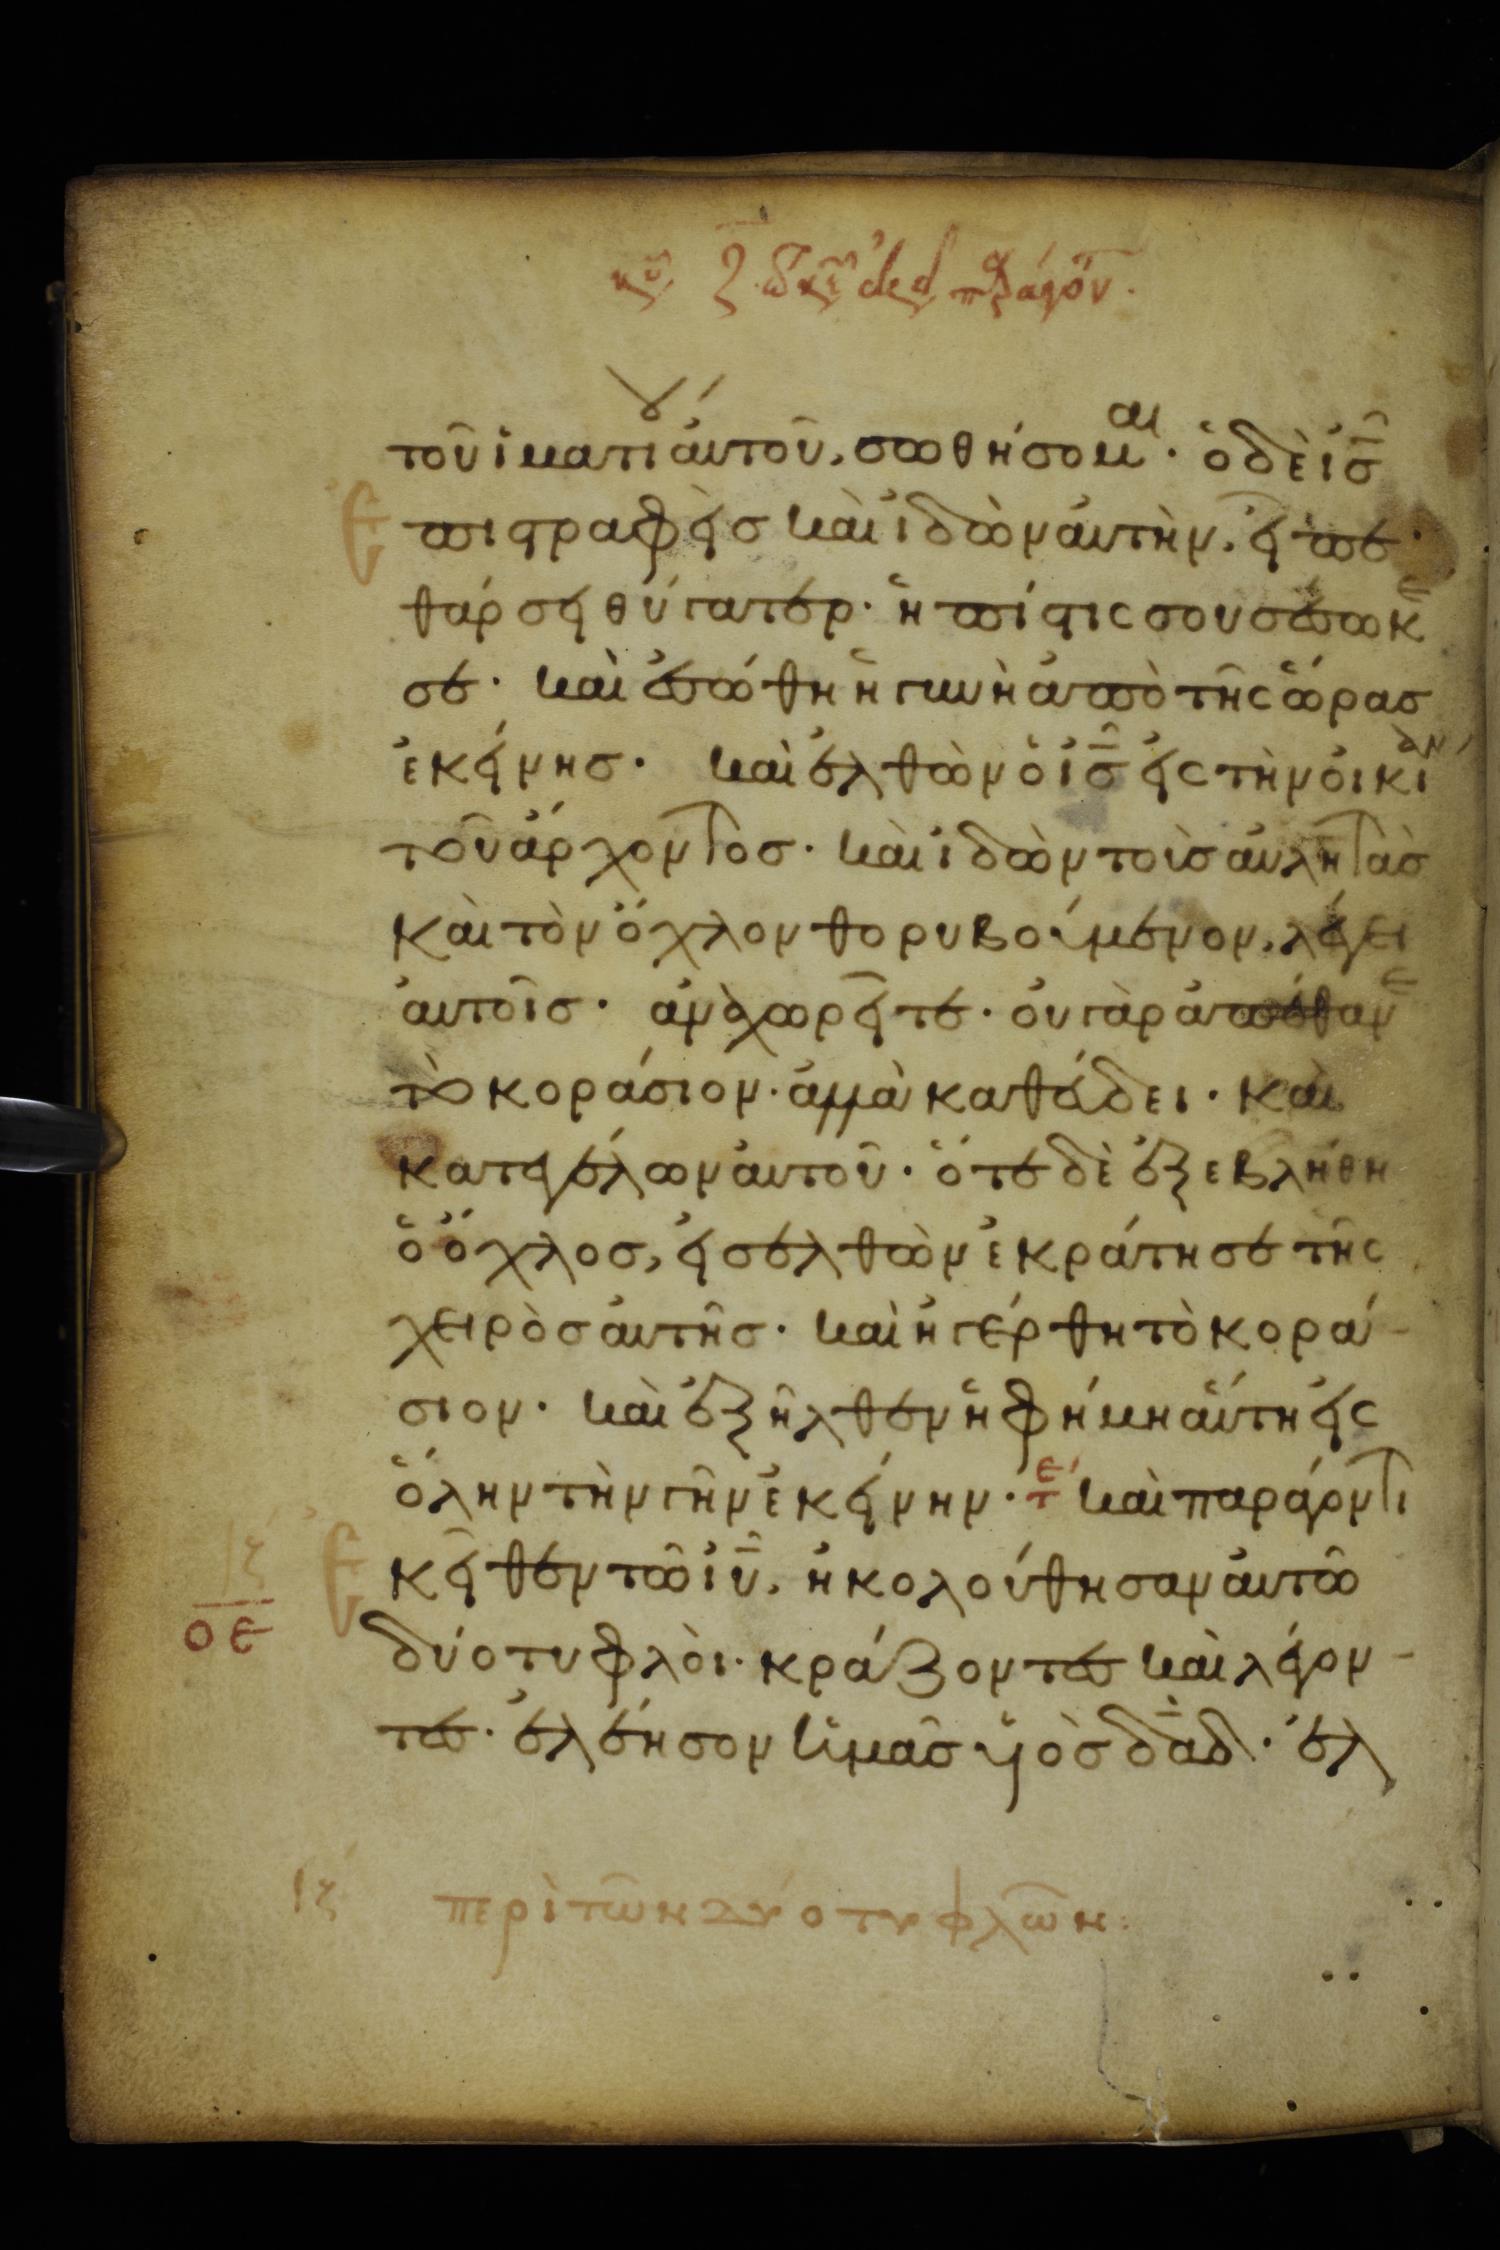 τοῦ ἱματίου αὐτοῦ, σωθήσομαι· ὁ δὲ ις
ἐπιστραφεὶς καὶ ἰδὼν αὐτὴν, εἶπε·
θάρσει θύγατερ· ἡ πίστις σου σέσωκέ
σε· καὶ ἐσώθη ἡ γυνὴ ἀπὸ τῆς ὥρας
ἐκείνης· καὶ ἐλθὼν ὁ ις εἰς τὴν οἰκίαν
τοῦ ἄρχοντος· καὶ ἰδὼν τοὺς αὐλητὰς
καὶ τὸν ὄχλον θορυβούμενον, λέγει
αὐτοῖς· ἀναχωρεῖτε· οὐ γὰρ ἀπέθανε
τὸ κοράσιον· ἀλλὰ καθεύδει· καὶ
κατεγέλων αὐτοῦ· ὅτε δὲ ἐξεβλήθη
ὁ ὄχλος, εἰσελθὼν ἐκράτησε τῆς
χειρὸς αὐτῆς· καὶ ἠγέρθη τὸ κορά-
σιον· καὶ ἐξῆλθεν ἡ φήμη αὕτη εἰς
ὅλην τὴν γῆν ἐκείνην· τε καὶ παράγοντι
ιζ ἐκεῖθεν τῶ ιυ, ἠκολούθησαν αὐτῶ
οε δύο τυφλοὶ· κράζοντες καὶ λέγον-
τες· ἐλέησον ἡμᾶς υἱὸς δαδ· ἐλ
ιζ περὶ τῶν δύο τυφλῶν: